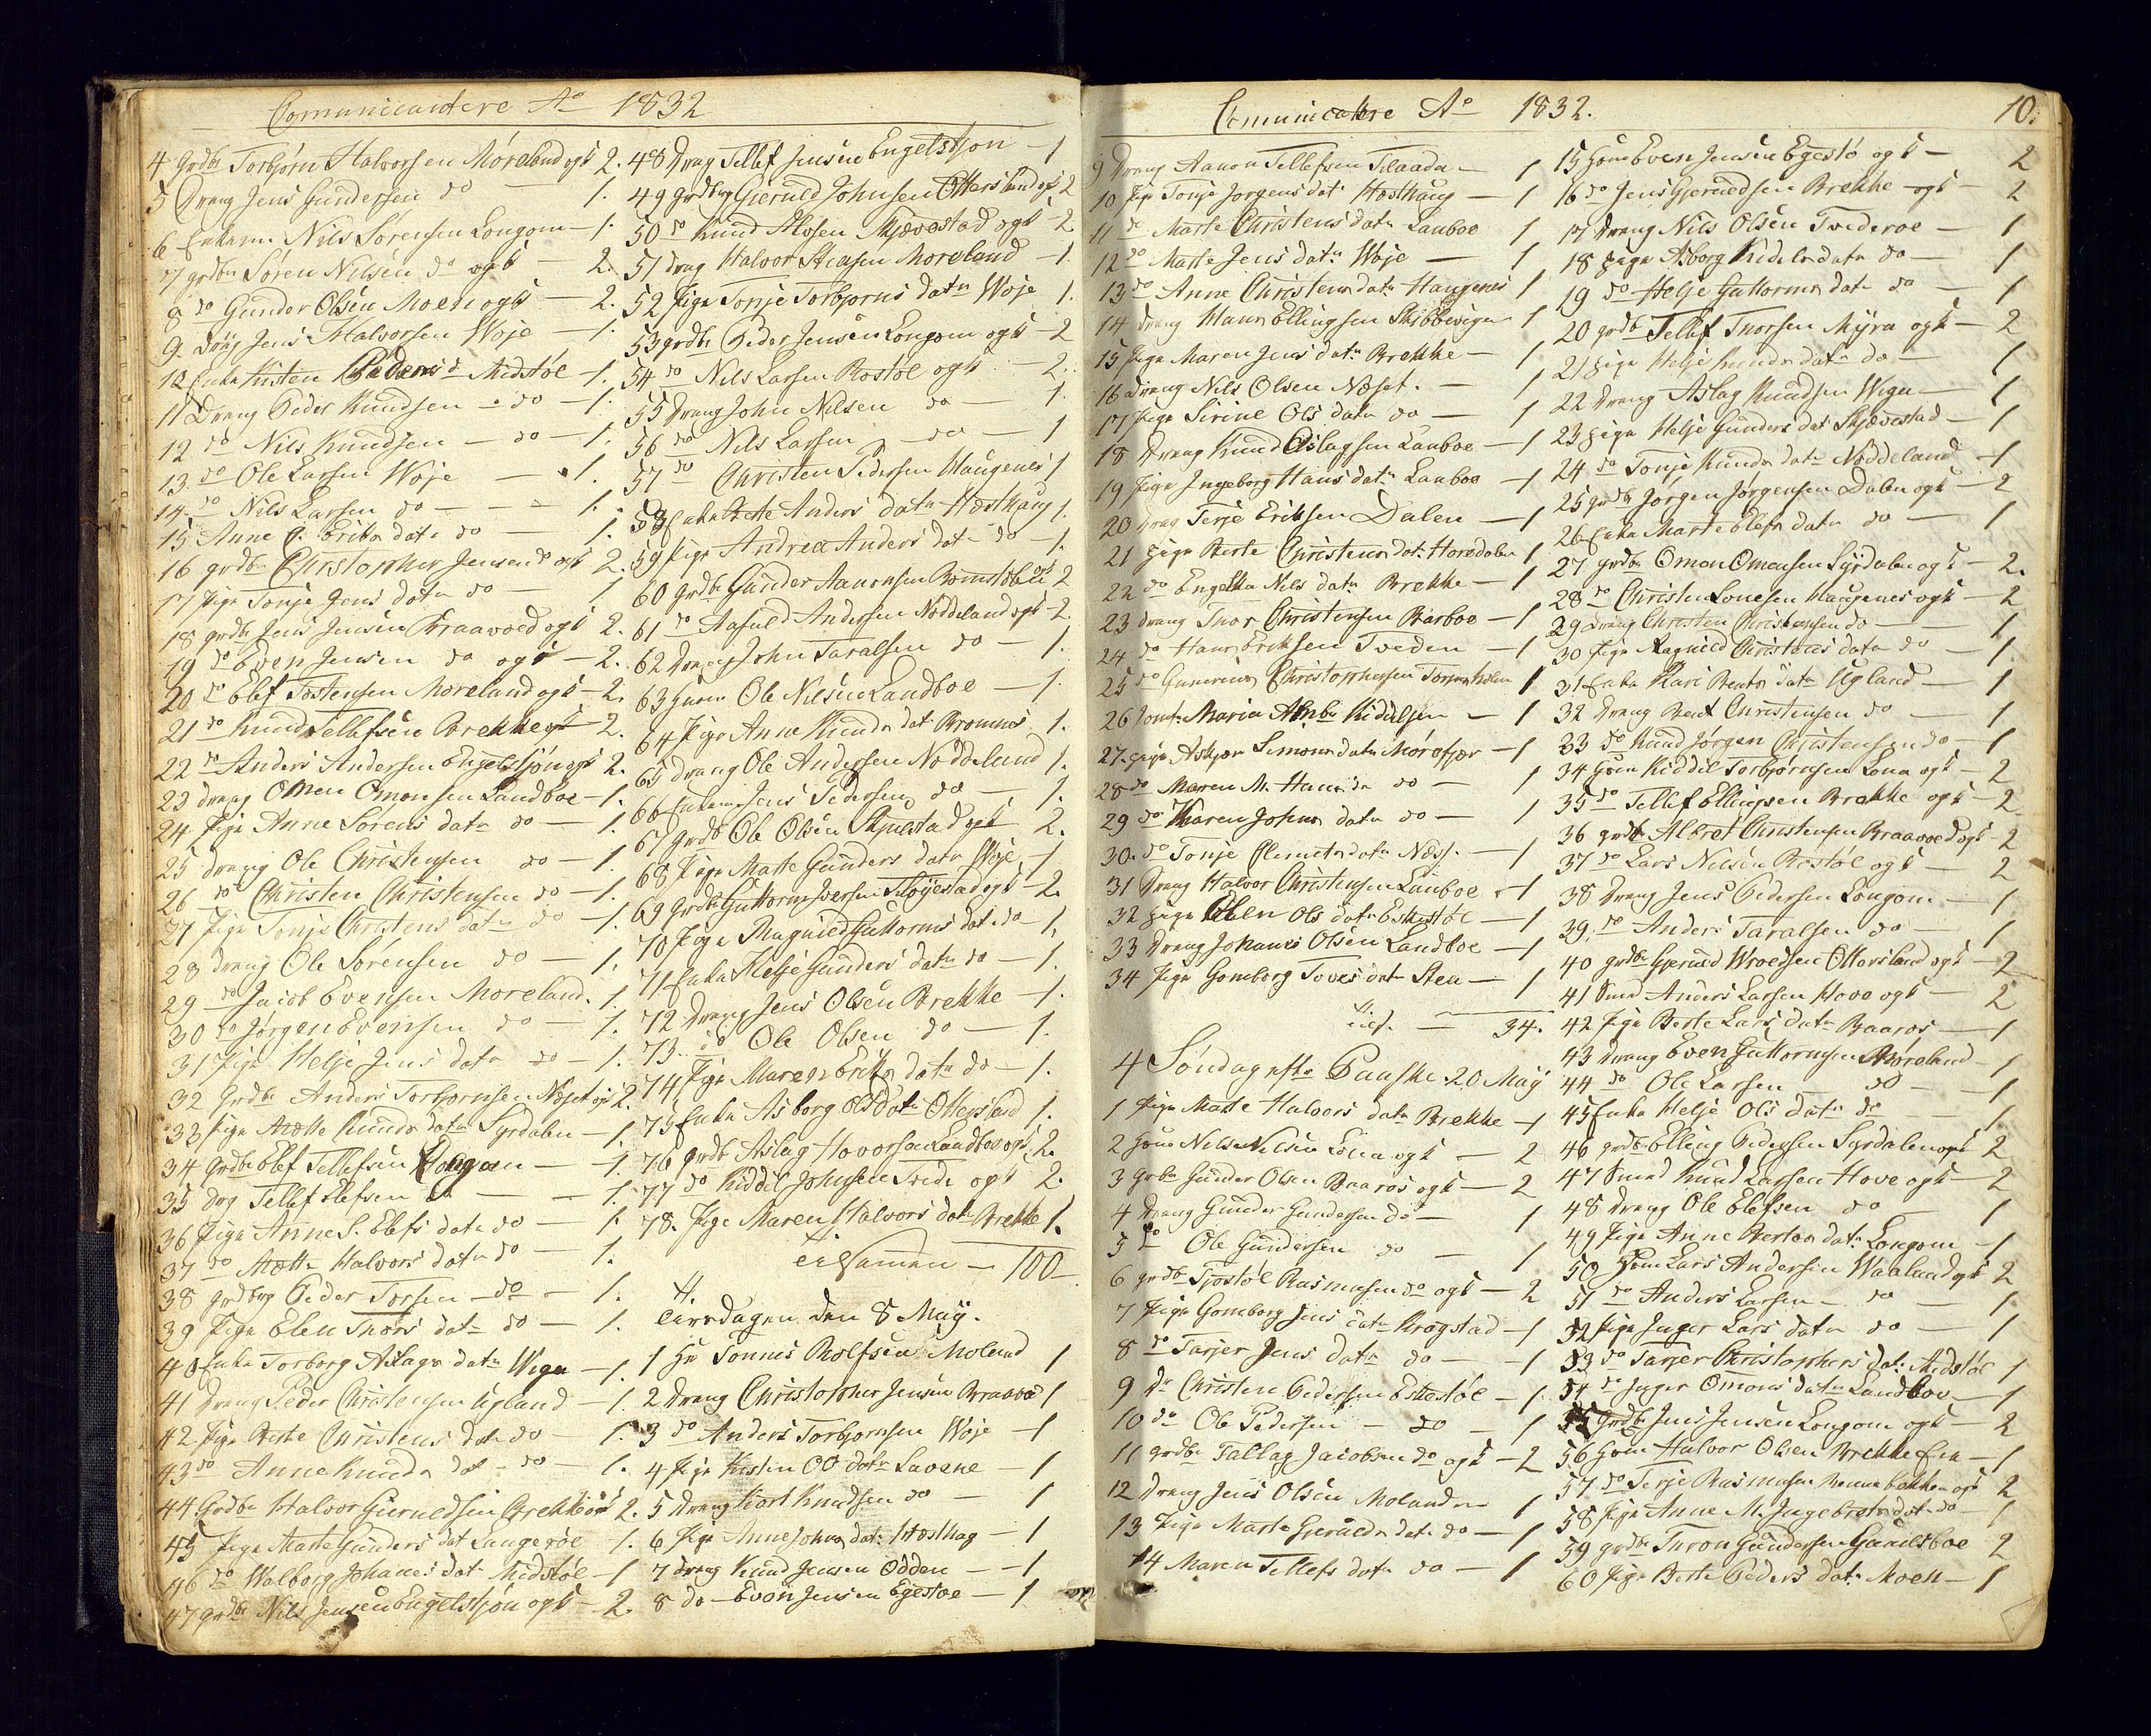 Comunicantere Ao 1832
4 grdbr Torbjørn Halvorsen Møreland ogk 2.
5 Drang Jens Gundersen do — 1.
6 Enkem Nils Sørensen Longom — 1.
7 grdbr Søren Nilsen do ogk — 2.
8 do Gunder Olsen Moen ogk — 2.
9. Drang Jens Halvorsen Woje — 1.
10 Enke Kisten Peders d Midstøl — 1.
11 Drang Peder Knudsen — do — 1.
12 do Nils Knudsen — do — 1.
13 do Ole Larsen Woje — 1.
14. do Nils Larsen do — 1.
15 Anne C. Eriks datr do — 1.
16 grdbr Christopher Jensen do ogk 2.
17 Pige Tonje Jens datr do — 1
18 grdbr Jens Jensen Braavoed ogk 2.
19 do Even Jensen do ogk — 2.
20 do Elef Tostensen Moreland ogk — 2.
21 do Knud Tellefsen Brekke ogk — 2.
22 do Anders Andersen Engelskjøn ogk 2.
23 drang Omen Omonsen Landboe — 1.
24 Pige Anne Sørens datr do — 1.
25 drang Ole Christensen do — 1.
26 do Christen Christensen do — 1.
27 Pige Tonje Christens datr do — 1.
28 drang Ole Sørensen do — 1.
29 do Jacob Evensen Moreland. 1.
30 do Jørgen Evensen do — 1.
31 Pige Helje Jens datr do — 1.
32 Grdbr Anders Torbjornsen Næset ogk 2.
33 Pige Mette Knuds datr Syrdalen — 1.
34 Grdbr Elef Tellefsen Longom — 1.
35 Drg Tellef Elefsen do — 1.
36 Pige Anne S. Elefs datr do — 1.
37 do Mette Halvors datr do — 1.
38 grdbrg Peder Torsen — do — 1.
39 Pige Elen Thors datr do — 1.
40 Enke Torborg Aslags datr Wigen — 1.
41 Drang Peder Christensen Ugland — 1.
42 Pige Berte Christens datr do — 1.
43 do Anne Knuds dat — do — 1.
44 Grdbr Halvor Gieruldsen Brekke ogk 2.
45 Pige Marte Gunders dat Langerøe 1.
46 do Walborg Johanes dat Midstøl — 1
47 grdbr Nils Jensen Engelskjøn ogk — 2.
48 Drang Tellef Jensen Engelskjon — 1
49 Grdbrg Gieruld Johnsen Ottersland ogk 2
50 do Knud Alvsen Skjævestad ogk — 2
51 drag Halvor Stiansen Moreland — 1.
52 Pige Tonje Torbjorns datr Woje 1.
53 grdbr Peder Jensen Longom ogk — 2
54 do Nils Larsen Rostøl ogk — 2.
55 Drang John Nilsen do — 1.
56 do Nils Larsen do — 1
57 do Christen Pedersen Haugenes 1
58 Enke Berte Anders datr Hæsthaug 1.
59 Pige Andrea Anders datr do — 1.
60 grdbr Gunder Aanonsen Bromstølen ogk 2
61 do Aasuld Andersen Noddeland ogk — 2.
62 Drang John Taralsen do — 1.
63 Huusm Ole Nilsen Landboe — 1.
64 Pige Anne Knuds dat Bromnes 1.
65 drang Ole Andersen Noddeland 1.
66 Enkem Jens Pedersen do — 1.
67 grdb Ole Olsen Skjulestad ogk 2.
68 Pige Marte Gunders datr Woje, — 1
69 Grdbr Guttorm Iversen Tiløyestad ogk — 2.
70 Pige Ragnild Guttorms dat do — 1.
71 Enke Helje Gunders datr do — 1.
72 Drang Jens Olsen Brekke — 1.
73 do Ole Olsen do — 1.
74 Pige Maren Eriks datr do — 1.
75 Enke Asborg Ols datr Ottersland 1.
76 grdb Aslag Hovorsen Landboe ogk 2.
77 do Kiddil Johnsen Trede ogk 2.
78. Pige Maren Halvors datr Brekke 1.
Tilsamen — 100
Tirsdagen den 8 May.
1 Hr Tonnes Rolfsen Moland 1
2 Drang Christopher Jensen Braavo 1
3 do Anders Torbjornsen Woje — 1
4 Pige Kisten OO datr Lavene — 1
5 Drang Kort Knudsen do — 1
6 Pige Anne Johns dat. Hæsthag — 1
7 drang Knud Jensen Odden — 1
8 do — Even Jensen Egestoe — 1
Comunicantere Ao 1832. 10.
9 Drang Aanon Tellefsen Tilaada — 1
10 Pige Tonje Jorgens dat Hæsthaug — 1
11 do Marte Christens datr Lauboe 1
12 do Marte Jens datr Woje — 1
13 do Anne Christens datr Haugenes 1
14 drang Hans Ellingsen Skibbevigen 1
15 Pige Maren Jens datr Brekke — 1
16 Drang Nils Olsen Næset. — 1
17 Pige Sirine Ols datr do — 1
18 Drang Knud Aslagsen Lauboe — 1
19 Pige Ingeborg Hans datr Lauboe — 1
20 Drag Terje Eriksen Dalen — 1
21 Pige Berte Christens dat. Horvdalen 1
22 do Engelke Nils datr Brekke — 1
23 drang Thor Christensen Barboe — 1
24 do Hans Eriksen Tveden — 1
25 do Gunerius Christophersen Torvesholm 1
26 Jomf. Maria Kiddelsen — 1
27. Pige Askjær Simons datr Mørefjær — 1
28 do Maren M. Hans da do — 1
29 do Karen Johns datr do — 1
30. do Tonje Clemets datr Næss. — 1
31 Drang Halvor Christensen Lauboe — 1
32 Pige Elen Ols datr Eskestøl — 1
33 Drang Johanes Olsen Landboe — 1
34 Pige Gomborg Toves dat Stea — 1
Tils. — 34.
4 Søndag efter Paaske 20 May
1 Pige Mette Halvors datr Brekke — 1
2 Huus Nils Nilsen Løna ogk — 2
3 Grbr Gunder Olsen Baaros ogk — 2
4 Drang Gunder Gundersen do — 1
5 do Ole Gundersen do — 1
6 grdbr Tjostøl Rasmusen do ogk — 2
7 Pige Gomborg Jens datr Krogstad — 1
8 do Tarjer Jens datr do — 1
9 Dr Christen Pedersen Eskestøl — 1.
10 do Ole Pedersen — do — 1
11 grdbr Tallag Jacobsen do ogk — 2
12 Drang Jens Olsen Moland 1
13 Pige Marte Gjerulds datr do — 1
14 Maren Tellefs datr do — 1
15 Huus Even Jensen Egestø ogk — 2
16 do Jens Gjeruldsen Brekke ogk — 2
17 Drang Nils Olsen Tvederoe — 1
18 Pige Asborg Kidels datr do — 1
19 do Helje Guttorms datr do — 1
20 grdb Tellef Thorsen Myra ogk — 2
21 Pige Helje Knuds datr do — 1
22 Drang Aslag Knudsen Wigen — 1
23 Pige Helje Gunders dat Skjævestad — 1
24 do Tonje Knuds datr Noddeland — 1
25 grdb Jørgen Jørgensen Dalen ogk — 2
26 Enke Marte Elefs datr do — 1
27 grdbr Omon Omonsen Syrdalen ogk — 2.
28 do Christen Lonesen Haugenes ogk — 2
29 Drang Christen Christensen do — 1
30 Pige Ragnild Christens datr do — 1
31 Enke Kari Bents datr Ugland — 1
32 Drang Bent Christensen do — 1
33 do Knud Jørgen Christensen do — 1
34 Huus Kiddil Torbjørnsen Lona ogk — 2
35 do Tellef Ellingsen Brekke ogk — 2
36 grdb Albret Christensen Braavoed ogk — 2
37 do Lars Nilsen Rostøl ogk — 2
38 Drang Jens Pedersen Longom — 1
39. do Anders Taralsen do — 1
40 grdbr Gjeruld Wroldsen Ottersland ogk — 2
41 Smed Anders Larsen Hove ogk — 2
42 Pige Berte Lars datr Baaros — 1
43 Drang Even Guttormsen Møreland — 1
44 do Ole Larsen do — 1
45 Enke Helje Ols datr do — 1
46 grdbr Elling Pedersen Syrdalen ogk 2
47 Smed Knud Larsen Hove ogk — 2
48 Drang Ole Elefsen do — 1
49 Pige Anne Bertes datr Longom — 1
50 Huus Lars Andersen Waaland ogk 2
51 do Anders Larsen — do — 1
52 Pige Inger Lars datr do — 1
53 do Tarjer Christophers dat. Midstøl 1
54 do Inger Omons datr Landboe — 1
55 Grdbr Jens Jensen Longom ogk — 2
56 Huus Halvor Olsen Brekke Enk — 1
57 do Terje Rasmusen Rennebekken ogk 2
58 Pige Anne M. Ingebrets datr do — 1
59 grdbr Thron Gundersen Garelsboe 2
60 Pige Berte Peders datr Moen — 1